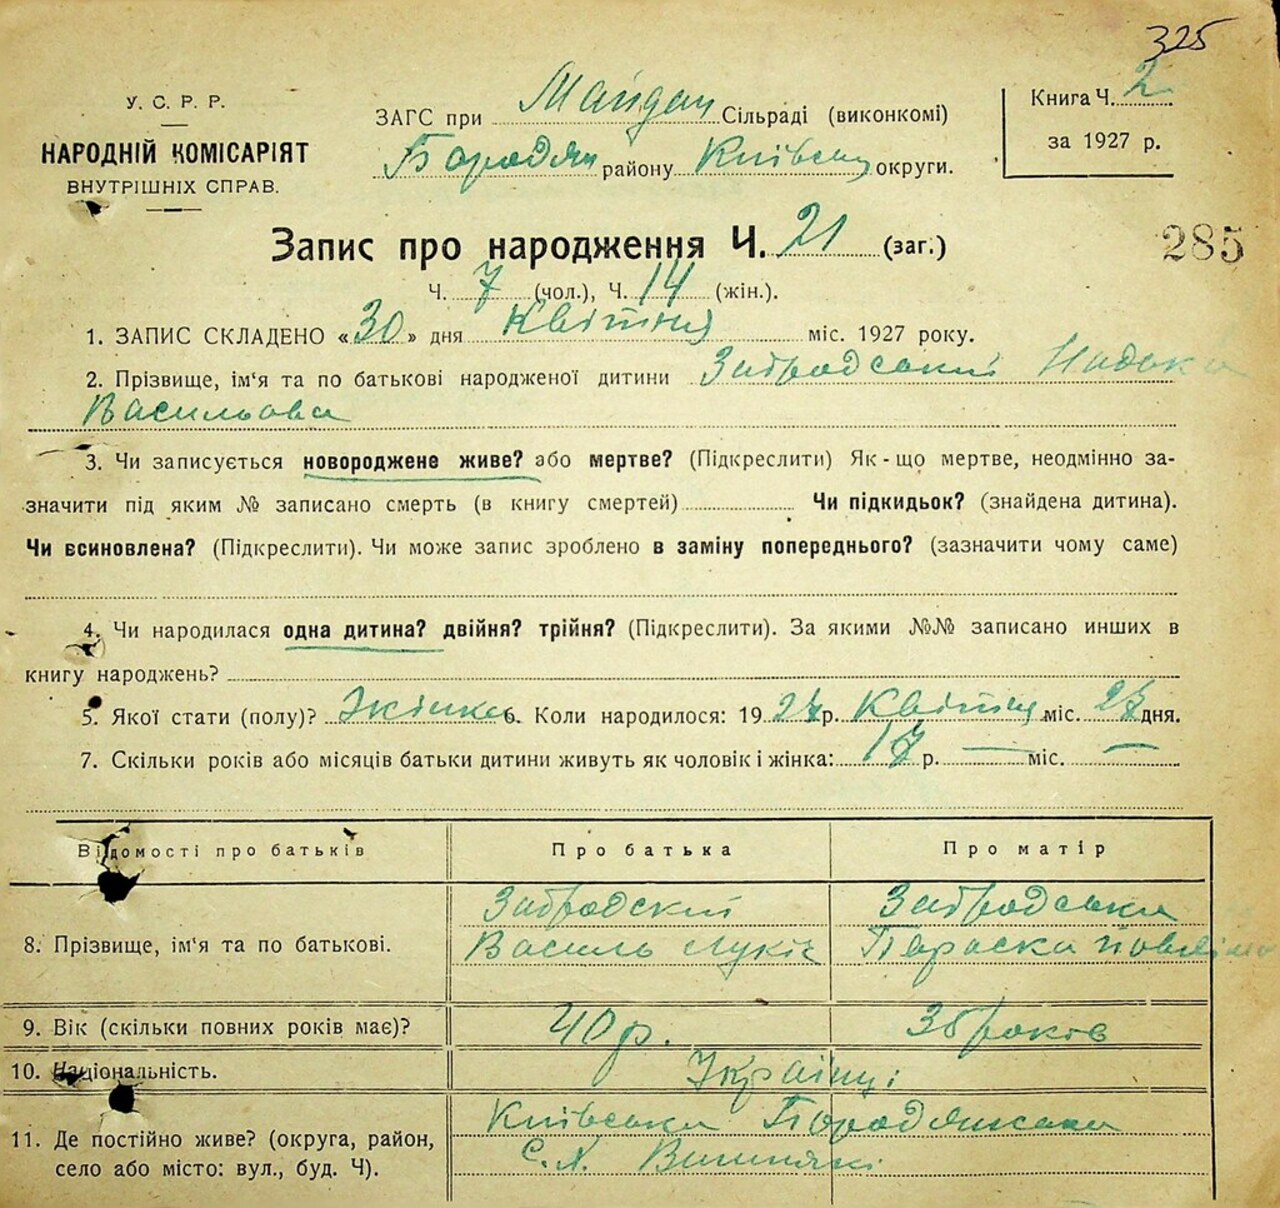 325
У. С. Р. Р.
НАРОДНІЙ КОМІСАРІЯТ
ВНУТРІШНІХ СПРАВ.
ЗАГС при Майдан Сільраді (виконкомі)
Бородян району Київськ округи.
Книга Ч. 2
за 1927 р.
Запис про народження Ч. 21 (заг.)
285
Ч. 7 (чол.), Ч. 14 (жін.).
1. ЗАПИС СКЛАДЕНО «30» дня Квітня міс. 1927 року.
2. Прізвище, ім'я та по батькові народженої дитини Забродський
Васильова
3. Чи записується новороджене живе? або мертве? (Підкреслити) Як-що мертве, неодмінно за-
значити під яким № записано смерть (в книгу смертей) Чи підкидьок? (знайдена дитина).
Чи всиновлена? (Підкреслити). Чи може запис зроблено в заміну попереднього? (зазначити чому саме)
4. Чи народилася одна дитина? двійня? трійня? (Підкреслити). За якими №№ записано инших в
книгу народжень?
5. Якої стати (полу)? Жіноч 6. Коли народилося: 1927 р. Квітня міс. 27 дня.
7. Скільки років або місяців батьки дитини живуть як чоловік і жінка: 17 р. — міс. —
Відомості про батьків Про батька Про матір
Забродский Забродська
8. Прізвище, ім'я та по батькові.
Василь Лукич Параска
9. Вік (скільки повних років має)? 40 р. 36 років
10. Національність. Українці
11. Де постійно живе? (округа, район,
село або місто: вул., буд. Ч).
Київська Бородянська
С. Х. Вишняки